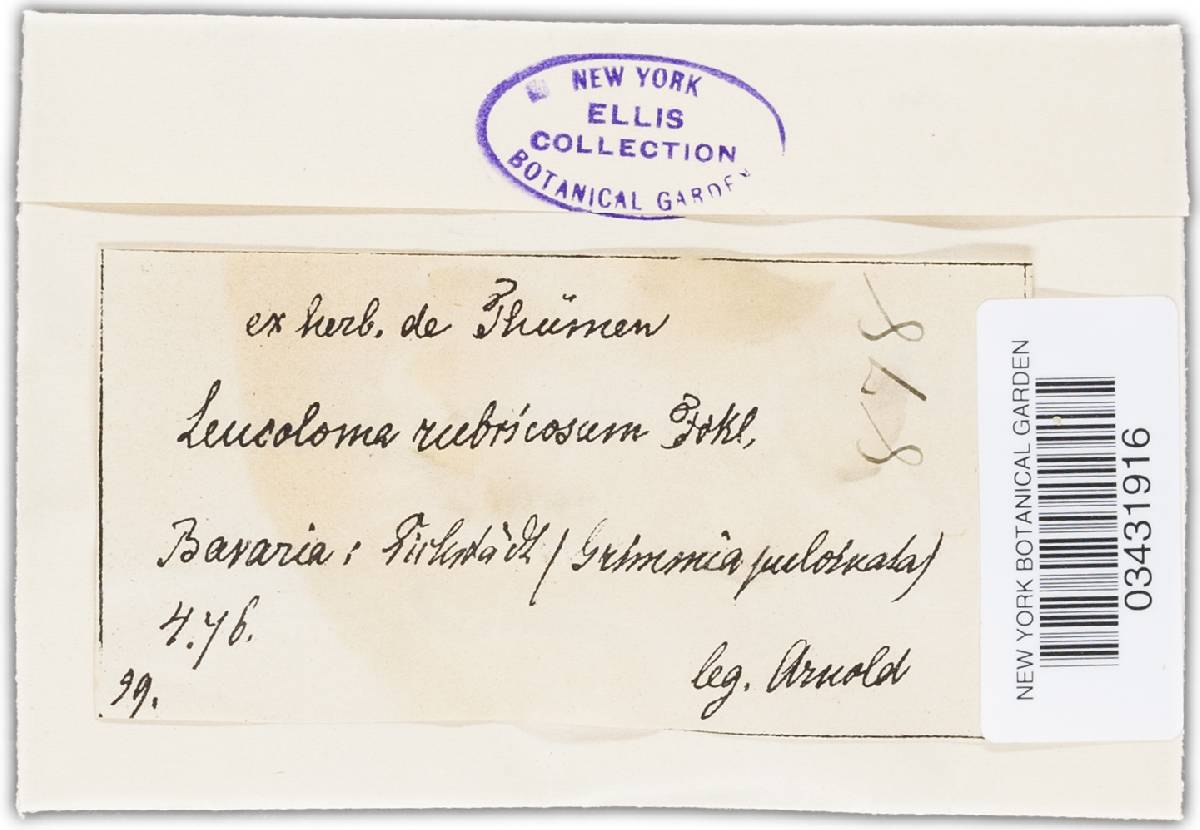 NEW YORK
ELLIS
COLLECTION
BOTANICAL GARDEN
ex herb. de Thümen
Leucoloma rubricosum Fckl.
878
Bavaria: Eichstädt (Grimmia pulvinata)
4.76.
99.
leg. Arnold
NEW YORK BOTANICAL GARDEN
03431916